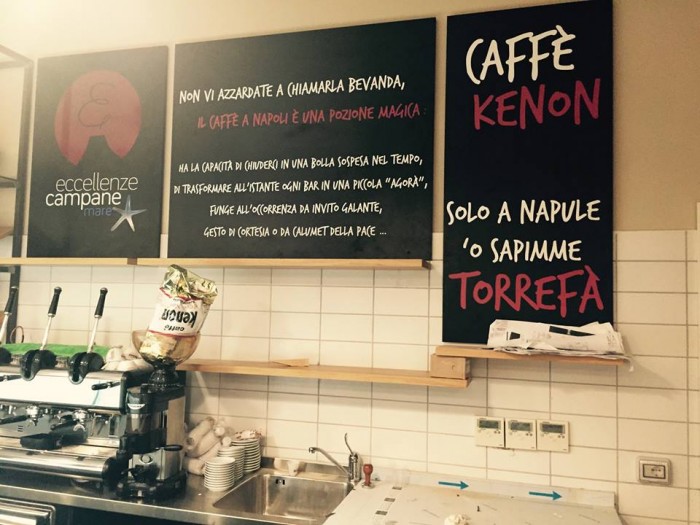 eccellenze
campane
mare
NON VI AZZARDATE A CHIAMARLA BEVANDA,
IL CAFFÈ A NAPOLI È UNA POZIONE MAGICA
HA LA CAPACITÀ DI CHIUDERCI IN UNA BOLLA SOSPESA NEL TEMPO,
DI TRASFORMARE ALL'ISTANTE OGNI BAR IN UNA PICCOLA "AGORÀ",
FUNGE ALL'OCCORRENZA DA INVITO GALANTE,
GESTO DI CORTESIA O DA CALUMET DELLA PACE ...
CAFFÈ
KENON
SOLO A NAPULE
'O SAPIMME
TORREFÀ
caffè
Kenon